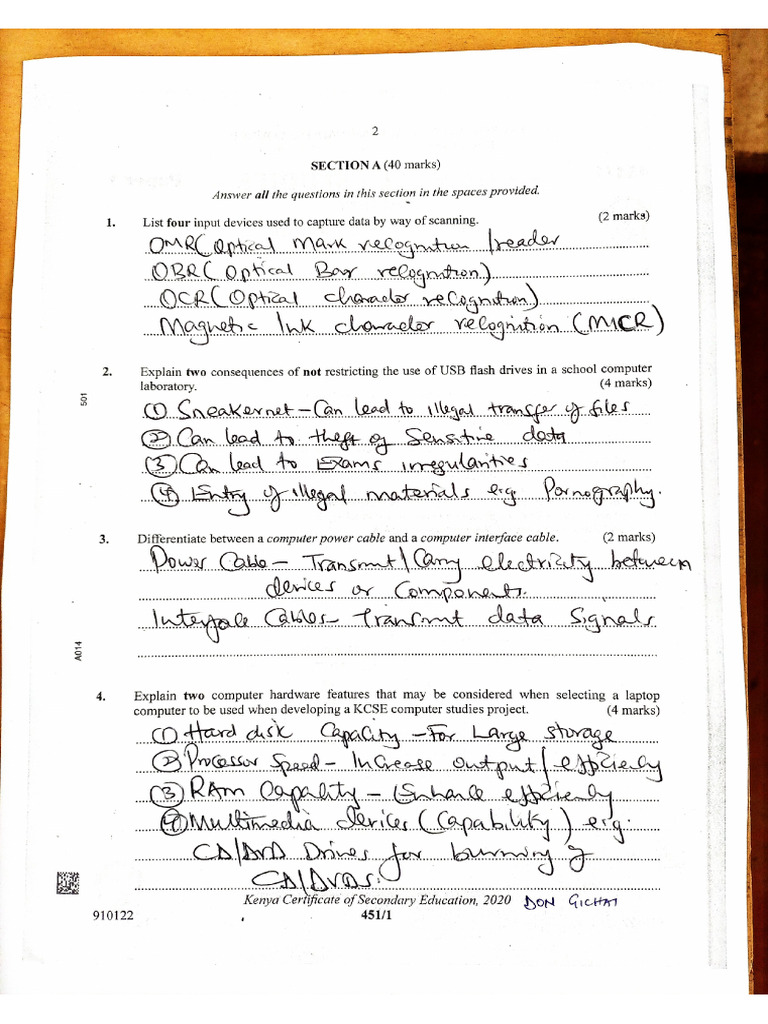 2
SECTION A (40 marks)
Answer all the questions in this section in the spaces provided.
1. List four input devices used to capture data by way of scanning. (2 marks)
OMR (Optical Mark recognition /reader
OBR (Optical Bar recognition)
OCR (Optical character recognition)
Magnetic Ink character recognition (MICR)
2. Explain two consequences of not restricting the use of USB flash drives in a school computer
laboratory. (4 marks)
501
① Sneakernet – Can lead to illegal transfer of files
② Can lead to theft of Sensitive data
③ Can lead to Exams irregularities
④ Entry of illegal materials e.g. Pornography.
3. Differentiate between a computer power cable and a computer interface cable. (2 marks)
Power Cable – Transmit/Carry electricity between
devices or Components.
Interface Cables – Transmit data Signals
A014
4. Explain two computer hardware features that may be considered when selecting a laptop
computer to be used when developing a KCSE computer studies project. (4 marks)
① Hard disk Capacity – For Large storage
② Processor Speed – Increase output/efficiency
③ RAM Capacity – Enhance efficiency
④ Multimedia devices (Capability) e.g.
CD/DVD Drives for burning of
CD/DVDs.
Kenya Certificate of Secondary Education, 2020 DON GICHAI
910122 451/1